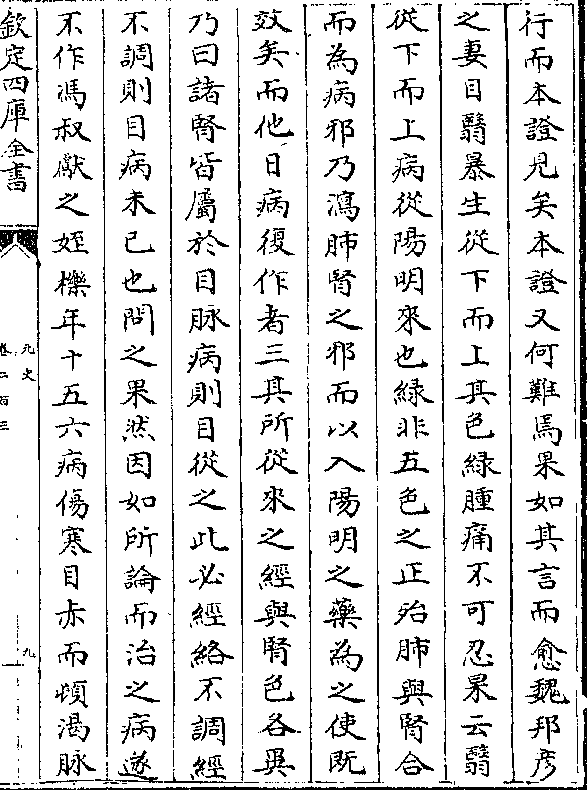 行而本證見矣本證又何難焉果如其言而愈魏邦彥
之妻目翳暴生從下而上其色綠腫痛不可忍果云翳
從下而上病從陽明來也綠非五色之正殆肺與腎合
而為病邪乃瀉肺腎之邪而以入陽明之藥為之使既
效矣而他日病復作者三其所從來之經與腎色各異
乃曰諸腎皆屬於目脉病則目從之此必經絡不調經
不調則目病未已也問之果然因如所論而治之病遂
不作馮叔獻之姪櫟年十五六病傷寒目赤而頓渴脉
欽定四庫全書
元史
卷二百三
九